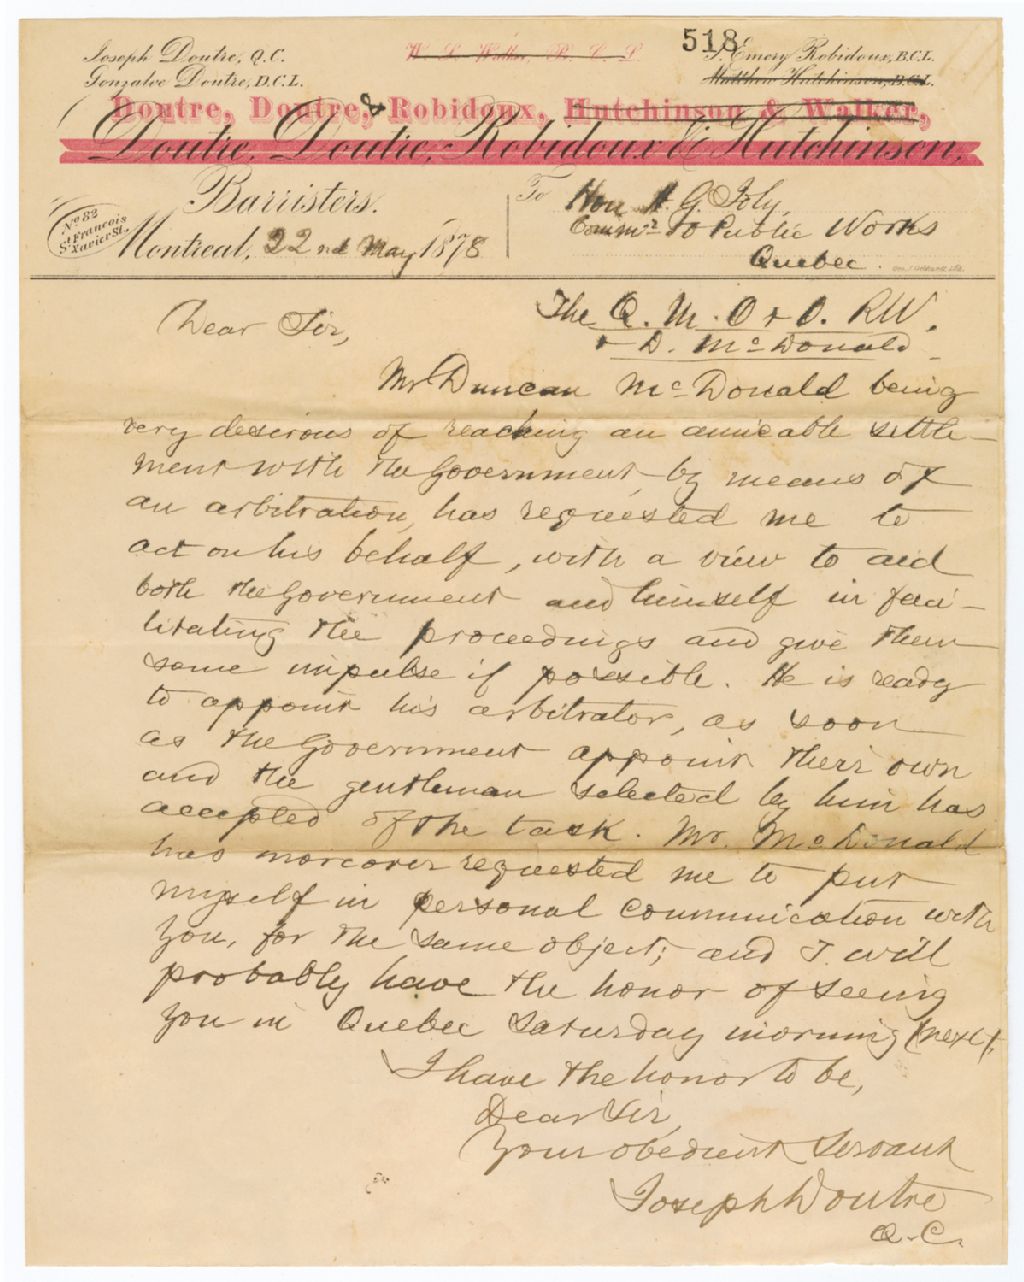 518
Joseph Doutre, Q.C.
W. S. Walker, B. C. L.
J. Emery Robidoux, B.C.L.
Gonzalve Doutre, D.C.L.
Matthew Hutchinson, B.C.L.
Doutre, Doutre, & Robidoux, Hutchinson & Walker,
Doutre, Doutre, Robidoux & Hutchinson,
Barristers.
No 32
St Francois
Xavier St.
Montreal, 22nd May 1878
To Hon H. G. Joly,
Commr to Public Works
Quebec.
Dear Sir,
The Q. M. O & O. RW.
& D. McDonald
Mr Duncan McDonald being
very desirous of reaching an amicable settle-
ment with the Government, by means of
an arbitration, has requested me to
act on his behalf, with a view to aid
both the Government and himself in faci-
litating the proceedings and give them
some impulse if possible. He is ready
to appoint his arbitrator, as soon
as the Government appoint their own
and the gentleman selected by him has
accepted of the task. Mr. McDonald
has moreover requested me to put
myself in personal communication with
you, for the same object; and I will
probably have the honor of seeing
you in Quebec Saturday morning next.
I have the honor to be,
Dear Sir,
Your obedient Servant
Joseph Doutre
Q.C.